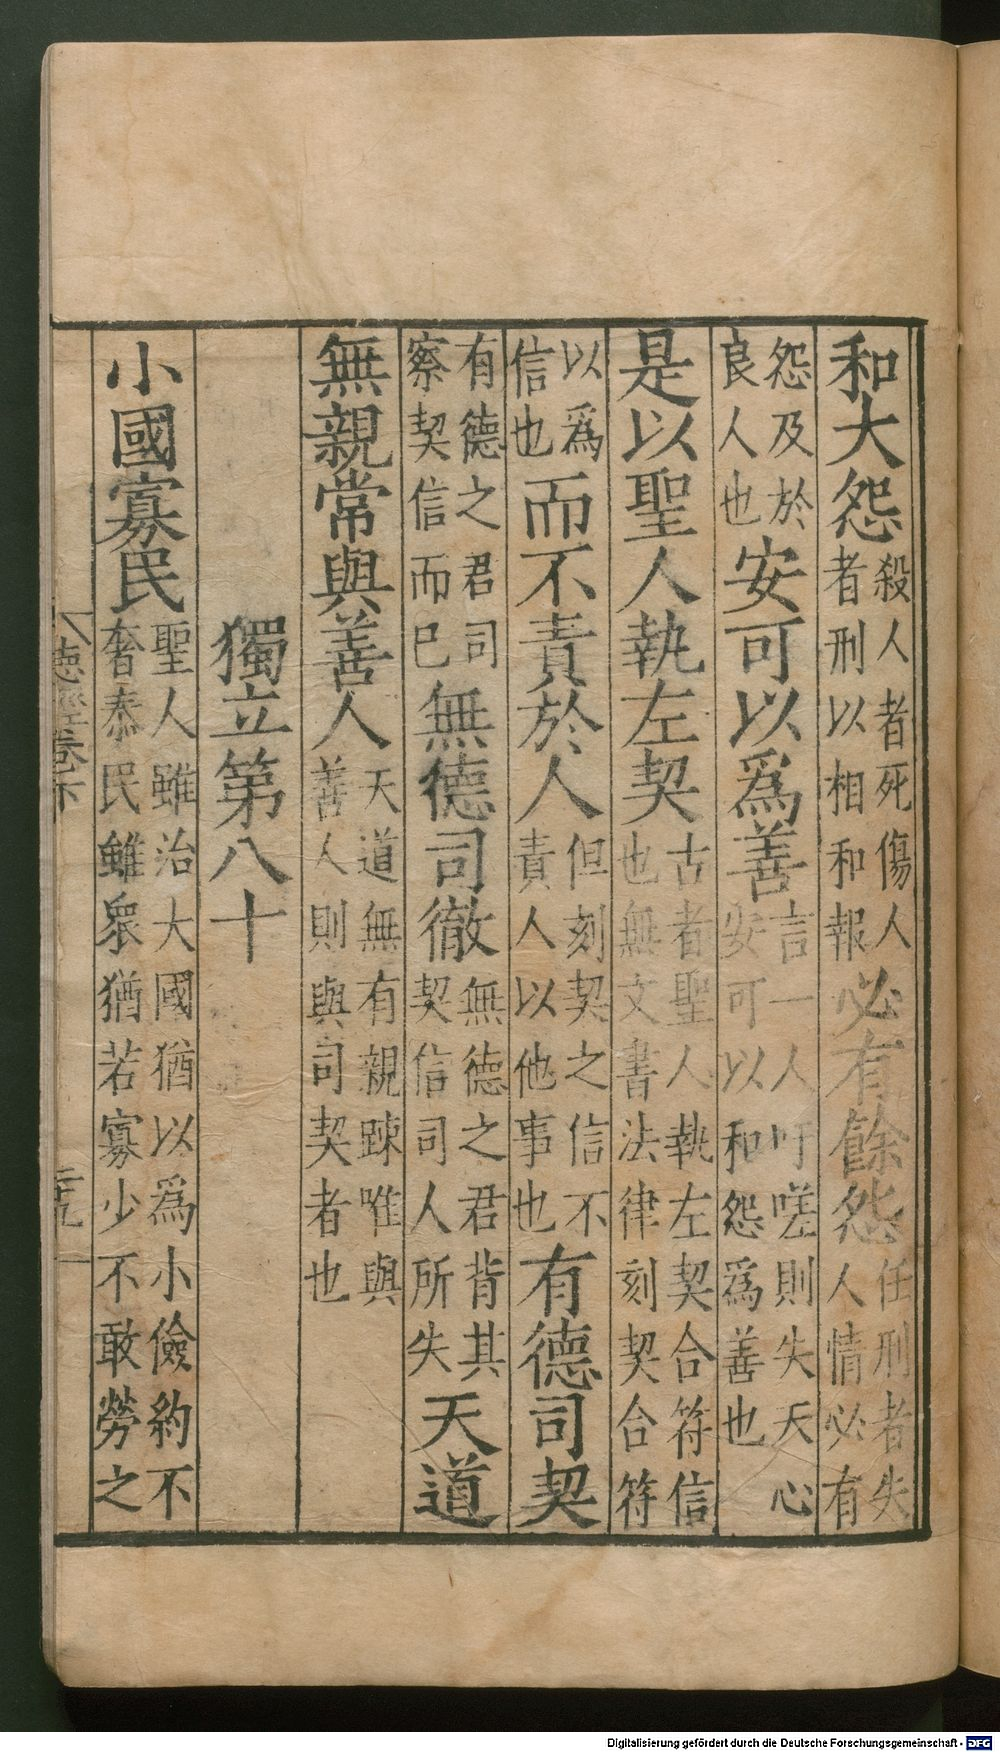 和大怨殺人者死傷人者刑以相和報必有餘怨任刑者失人情必有
怨及於良人也安可以爲善言一人吁嗟則失天心安可以和怨爲善也
是以聖人執左契古者聖人執左契合符信也無文書法律刻契合符
以爲信也而不責於人但刻契之信不責人以他事也有德司契
有德之君司察契信而巳無德司徹無德之君背其契信司人所失天道
無親常與善人天道無有親踈唯與善人則與司契者也
獨立第八十
小國寡民聖人雖治大國猶以爲小儉約不奢泰民雖衆猶若寡少不敢勞之
德經卷下
二九
Digitalisierung gefördert durch die Deutsche Forschungsgemeinschaft - DFG